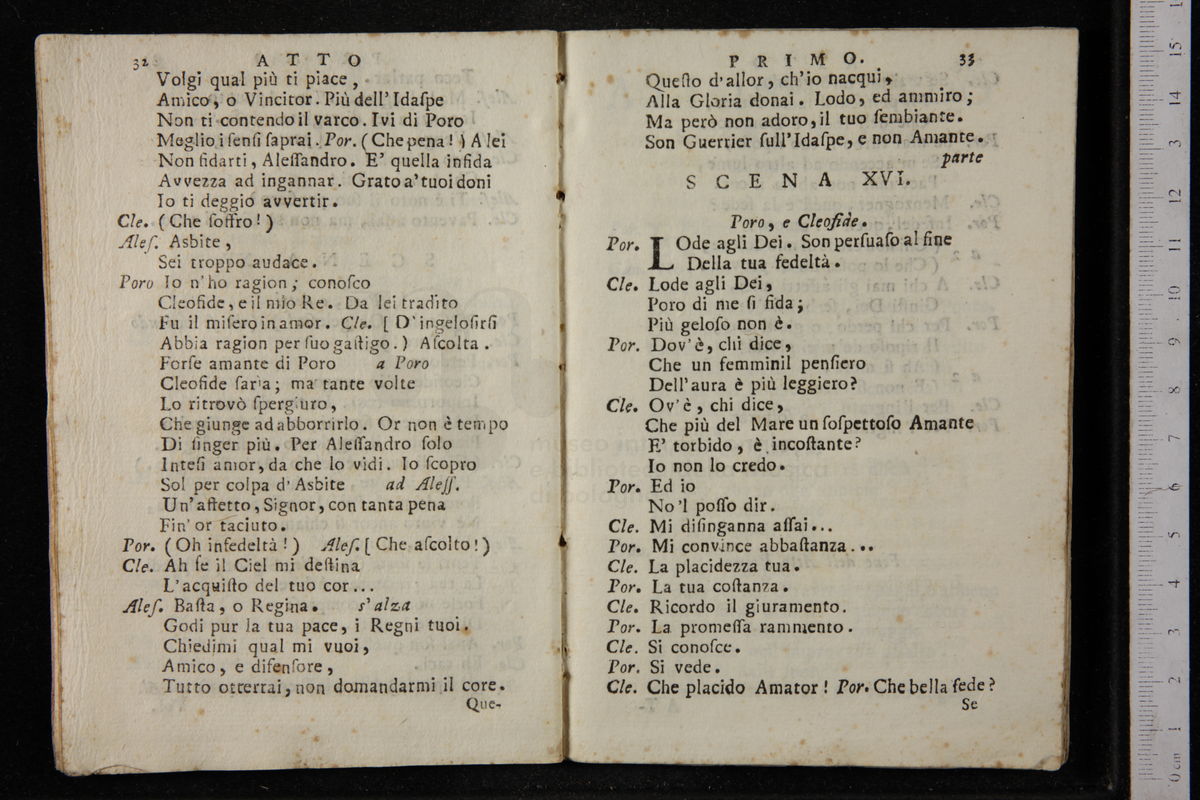 32 ATTO
Volgi qual più ti piace,
Amico, o Vincitor. Più dell' Idaſpe
Non ti contendo il varco. Ivi di Poro
Meglio i ſenſi ſaprai. Por. (Che pena!) A lei
Non fidarti, Aleſſandro. E' quella infida
Avvezza ad ingannar. Grato a' tuoi doni
Io ti deggio avvertir.
Cle. (Che ſoffro!)
Aleſ. Asbite,
Sei troppo audace.
Poro Io n'ho ragion; conoſco
Cleofide, e il mio Re. Da lei tradito
Fu il miſero in amor. Cle. [ D'ingeloſirſi
Abbia ragion per ſuo gaſtigo.) Aſcolta.
Forſe amante di Poro a Poro
Cleofide ſaria; ma tante volte
Lo ritrovò ſpergiuro,
Che giunge ad abborrirlo. Or non è tempo
Di finger più. Per Aleſſandro ſolo
Inteſi amor, da che lo vidi. Io ſcopro
Sol per colpa d' Asbite ad Aleſſ.
Un' affetto, Signor, con tanta pena
Fin' or taciuto.
Por. (Oh infedeltà!) Aleſ. [ Che aſcolto!)
Cle. Ah ſe il Ciel mi deſtina
L'acquiſto del tuo cor...
Aleſ. Baſta, o Regina. s'alza
Godi pur la tua pace, i Regni tuoi.
Chiedimi qual mi vuoi,
Amico, e difenſore,
Tutto otterrai, non domandarmi il core.
Que-
PRIMO. 33
Queſto d'allor, ch'io nacqui,
Alla Gloria donai. Lodo, ed ammiro;
Ma però non adoro, il tuo ſembiante.
Son Guerrier ſull'Idaſpe, e non Amante.
parte
SCENA XVI.
Poro, e Cleofide.
Por. LOde agli Dei. Son perſuaſo al fine
Della tua fedeltà.
Cle. Lode agli Dei,
Poro di me ſi fida;
Più geloſo non è.
Por. Dov'è, chi dice,
Che un femminil penſiero
Dell'aura è più leggiero?
Cle. Ov'è, chi dice,
Che più del Mare un ſoſpettoſo Amante
E' torbido, è incoſtante?
Io non lo credo.
Por. Ed io
No'l poſſo dir.
Cle. Mi diſinganna aſſai...
Por. Mi convince abbaſtanza...
Cle. La placidezza tua.
Por. La tua coſtanza.
Cle. Ricordo il giuramento.
Por. La promeſſa rammento.
Cle. Si conoſce.
Por. Si vede.
Cle. Che placido Amator! Por. Che bella fede?
Se
0 cm 1 2 3 4 5 6 7 8 9 10 11 12 13 14 15